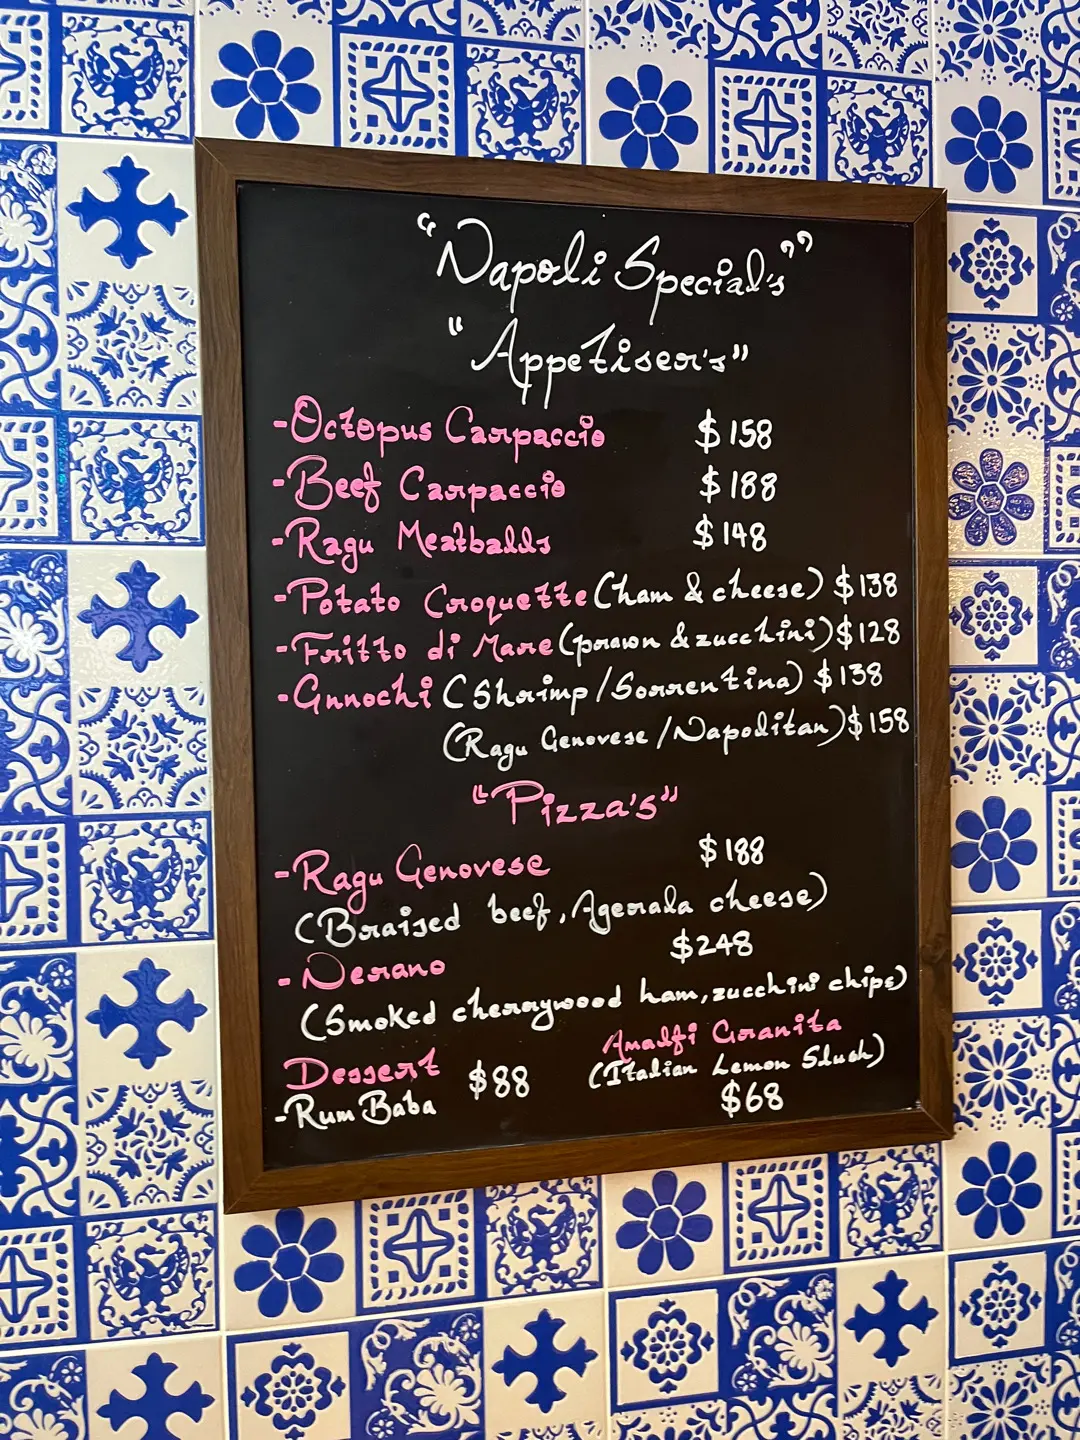 "Napoli Special's"
"Appetiser's"
-Octopus Carpaccio $158
-Beef Carpaccio $188
-Ragu Meatballs $148
-Potato Croquette (ham & cheese) $138
-Fritto di Mare (prawn & zucchini) $128
-Gnnochi (Shrimp/Sorrentina) $138
(Ragu Genovese/Napolitan) $158
"Pizza's"
-Ragu Genovese $188
(Braised beef, Agerala cheese)
-Nerano $248
(Smoked cherrywood ham, zucchini chips)
Dessert
-Rum Baba $88
Amalfi Granita
(Italian Lemon Slush)
$68